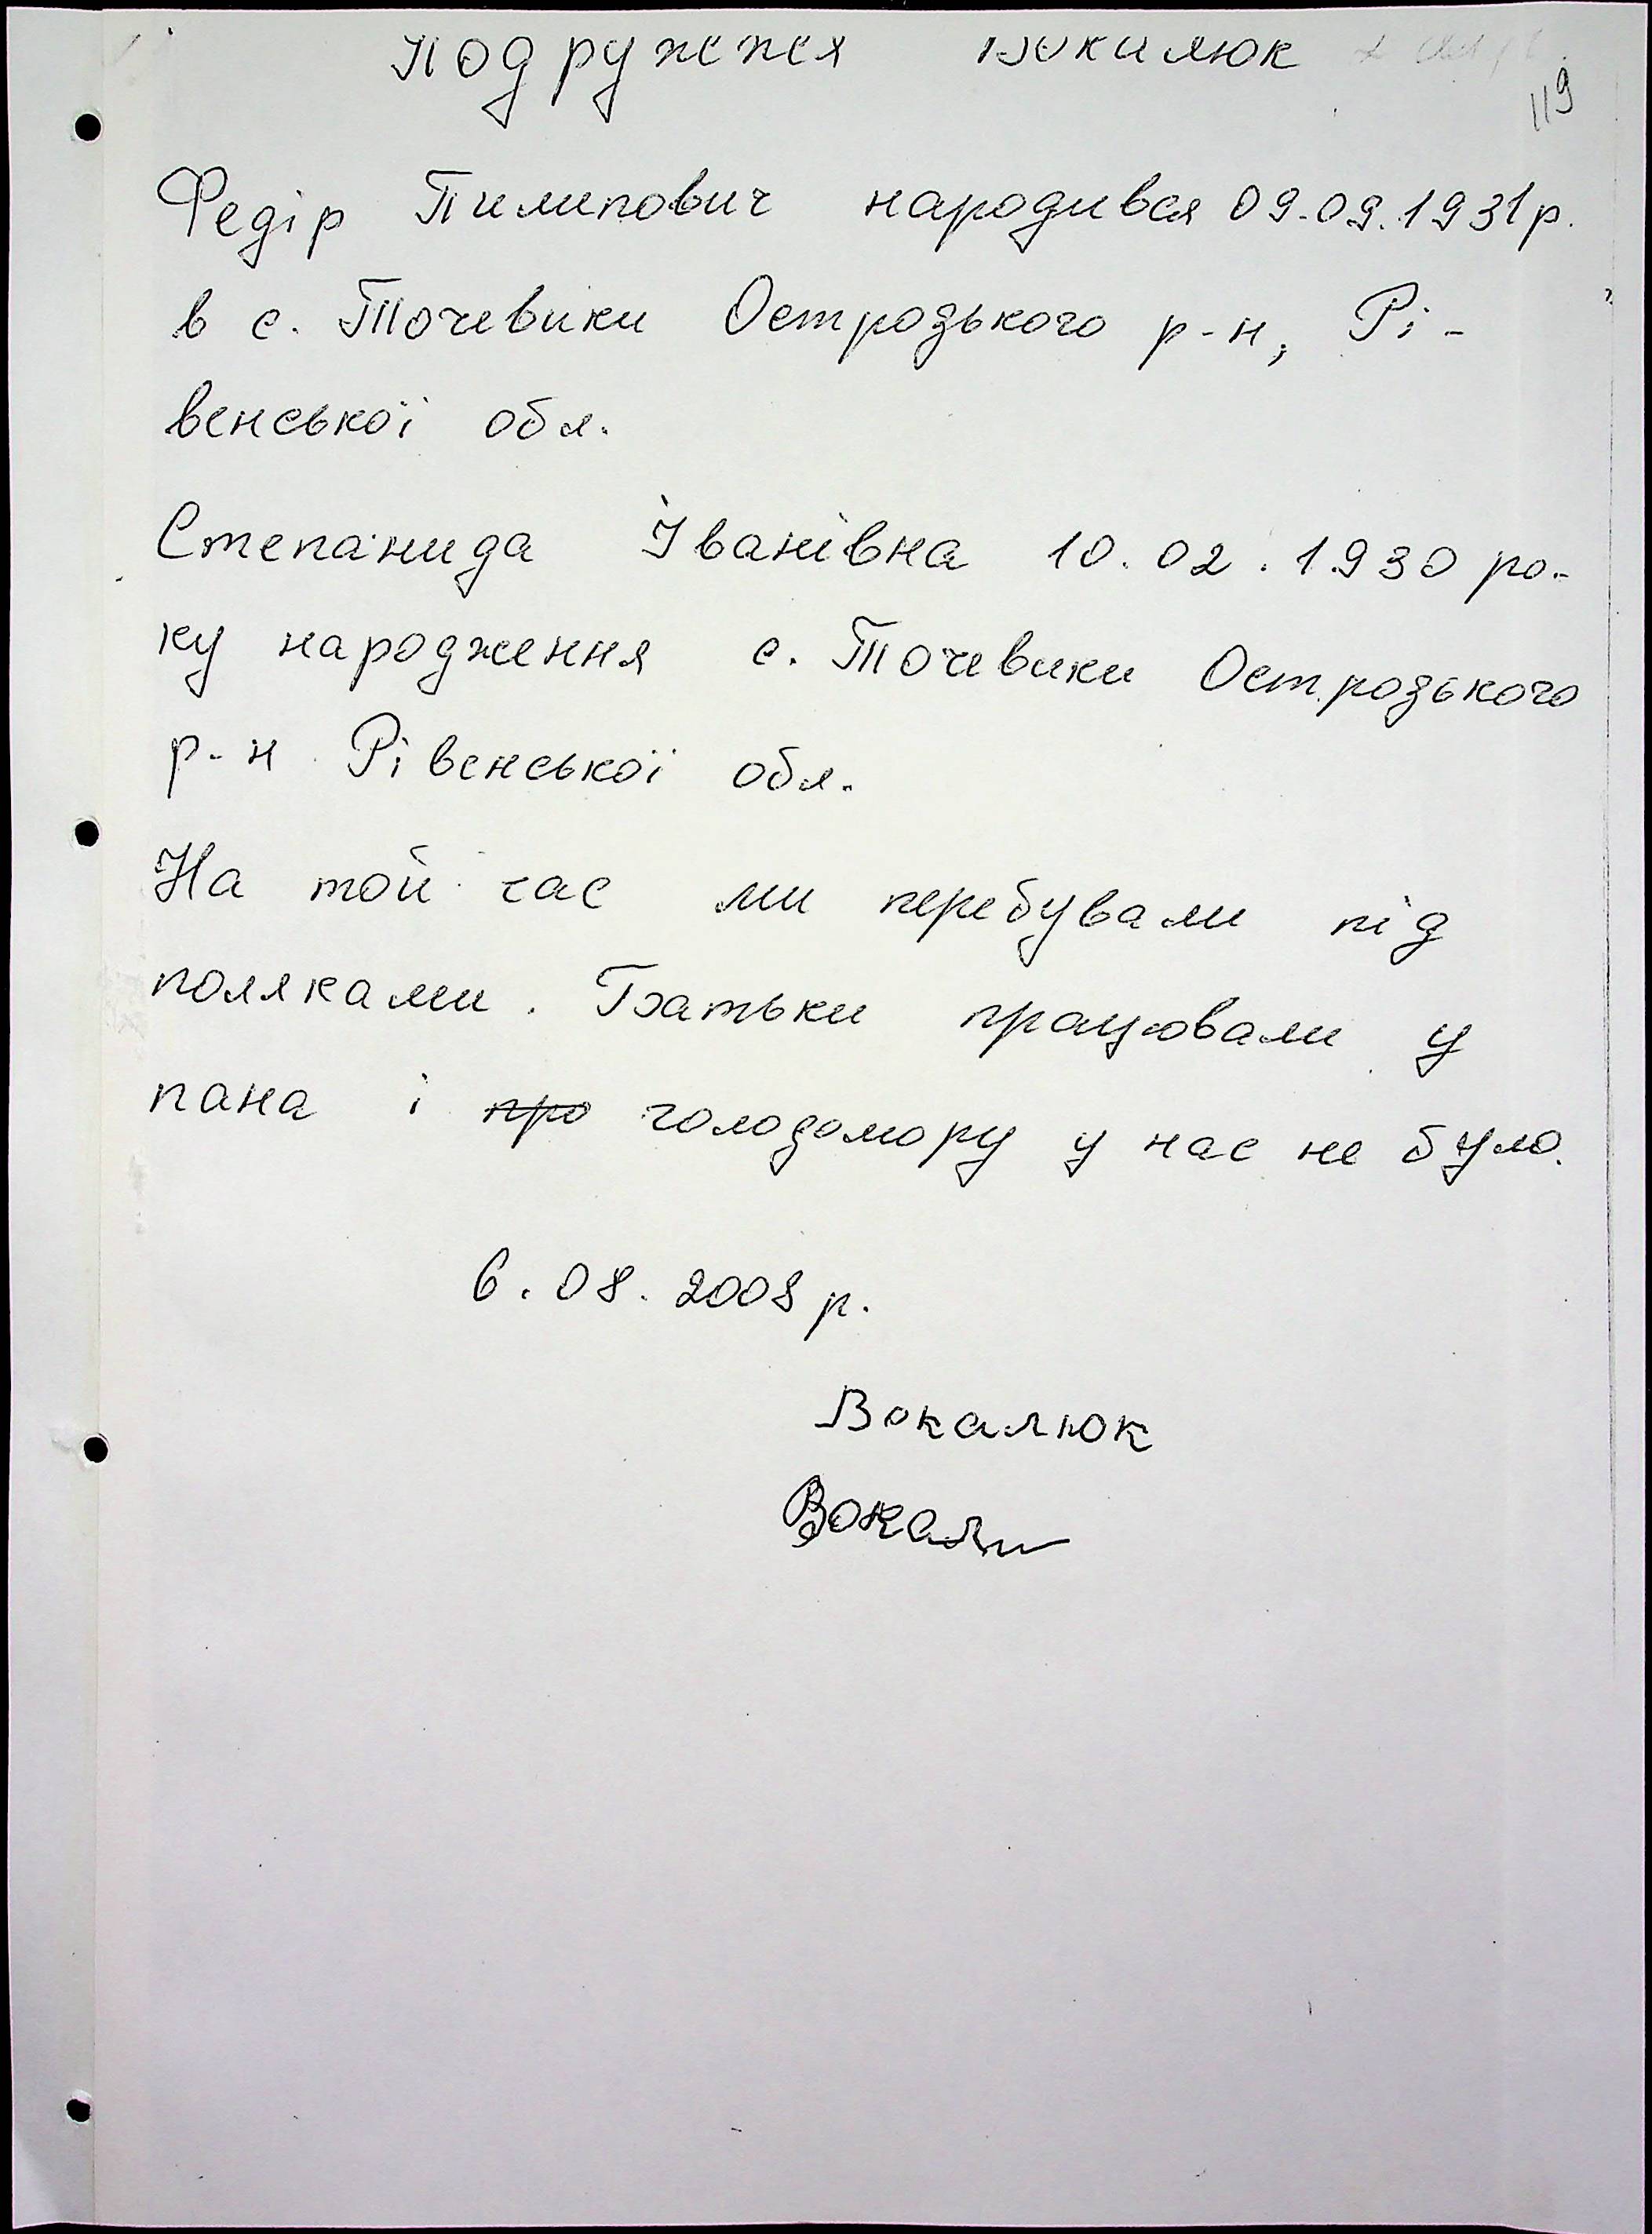 Подружжя Вокалюк
119
Федір Пилипович народився 09.09.1931р.
в с. Точевики Острозького р-н, Рі-
венської обл.
Степанида Іванівна 10.02.1930 ро-
ку народження с. Точевики Острозького
р-н Рівенської обл.
На той час ми перебували під
поляками. Батьки працювали у
пана і про голодомору у нас не було.
6.08.2008 р.
Вокалюк
Вокалю